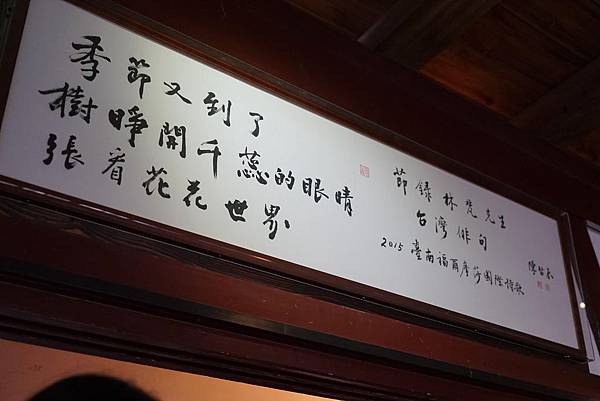 季節又到了
樹睜開千蕊的眼睛
張看花花世界
節錄林梵先生
台灣俳句
2015 臺南福爾摩莎國際詩歌